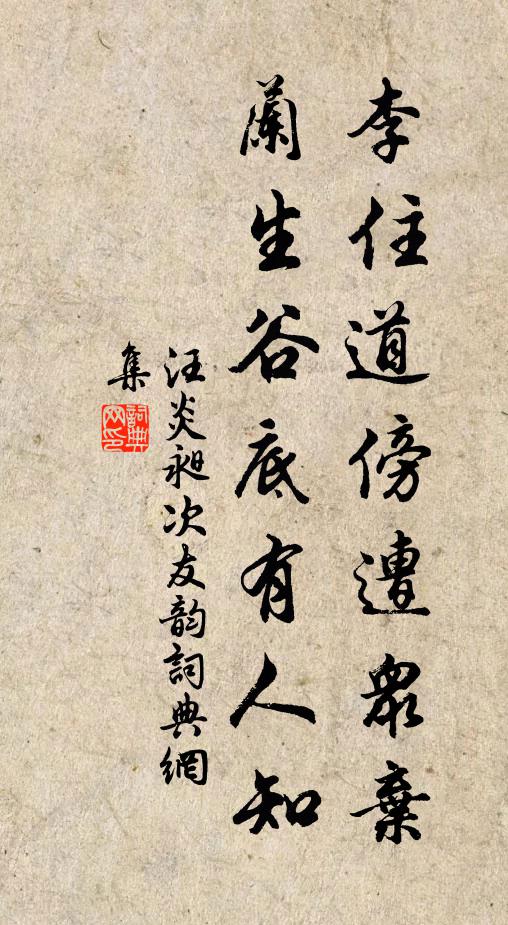 李住道傍遭衆棄
蘭生谷底有人知
汪炎昶次友韵詞典網
集
詞典网印